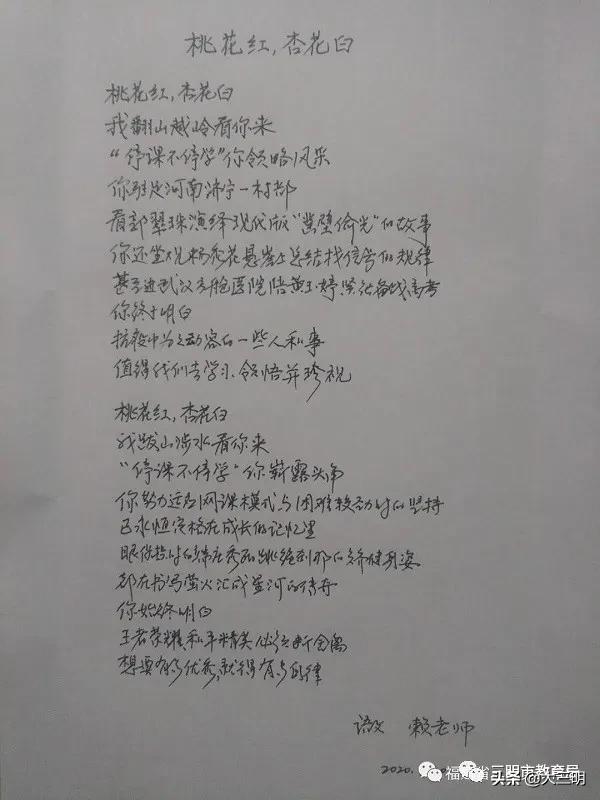 桃花红，杏花白
桃花红，杏花白
我翻山越岭看你来
“停课不停学”你领略风采
你驻足河南济宁一村部
看郭翠珠演绎现代版“凿壁偷光”的故事
你还坐观杨秀花悬崖上总结找信号的规律
甚至进武汉方舱医院陪黄玉婷坚袗备战高考
你终于明白
抗疫中为之动容的一些人和事
值得我们去学习、领悟并珍视
桃花红，杏花白
我跋山涉水看你来
“停课不停学”你崭露头角
你努力适应网课模式与困难较劲时的坚持
已永恒定格在成长的记忆里
跟你热时的操跳绳到的矫健身姿
都在书写萤火汇成星河的传奇
你始终明白
王者荣耀和平精英必须断舍离
想要有多优秀，就得有多自律
语文 赖老师
2020.
福建省三明市教育局
头条 @大三明